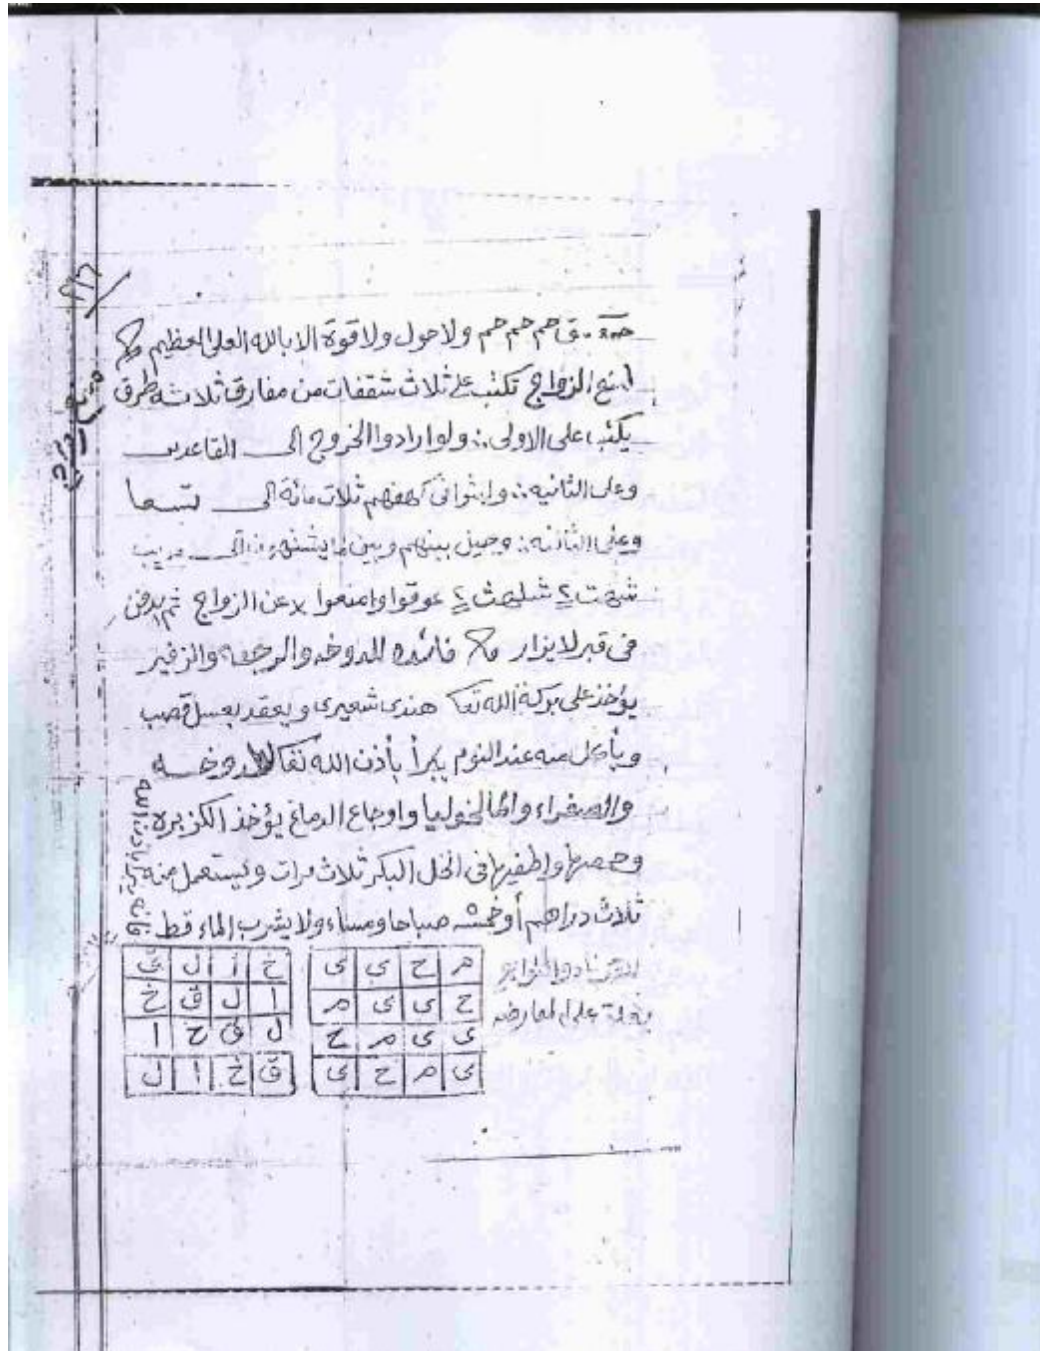 حم حم حم ولا حول ولا قوة الا بالله العلى العظيم
لمنع الزواج تكتب على ثلاث شقفات من مفارق ثلاثه طرق
يكتب على الاولى ولو ارادوا الخروج الى القاعدين
وعلى الثانيه ولبثوا فى كهفهم ثلاث مائة الى تسعا
وعلى الثالثه وحيل بينهم وبين ما يشتهون الى مريب
عوقوا وامنعوا عن الزواج ثم يدفن
فى قبر لا يزار فائده للدوخه والرجفه والزفير
يؤخذ على بركة الله تعا هندى شعيرى ويعقد بعسل قصب
ويأكل منه عند النوم يبرأ بأذن الله تعا
والصفراء والمالخوليا واوجاع الدماغ يؤخذ الكزبره
وحمصها واطفيها فى الخل البكر ثلاث مرات ويستعمل منه
ثلاث دراهم أو خمسه صباحا ومساء ولا يشرب الماء قط
فانه يبرأ باذن الله
م ح ى ى
ح ى ى م
ى ى م ح
ى م ح ى
خ ا ل ق
ا ل ق خ
ل ق خ ا
ق خ ا ل